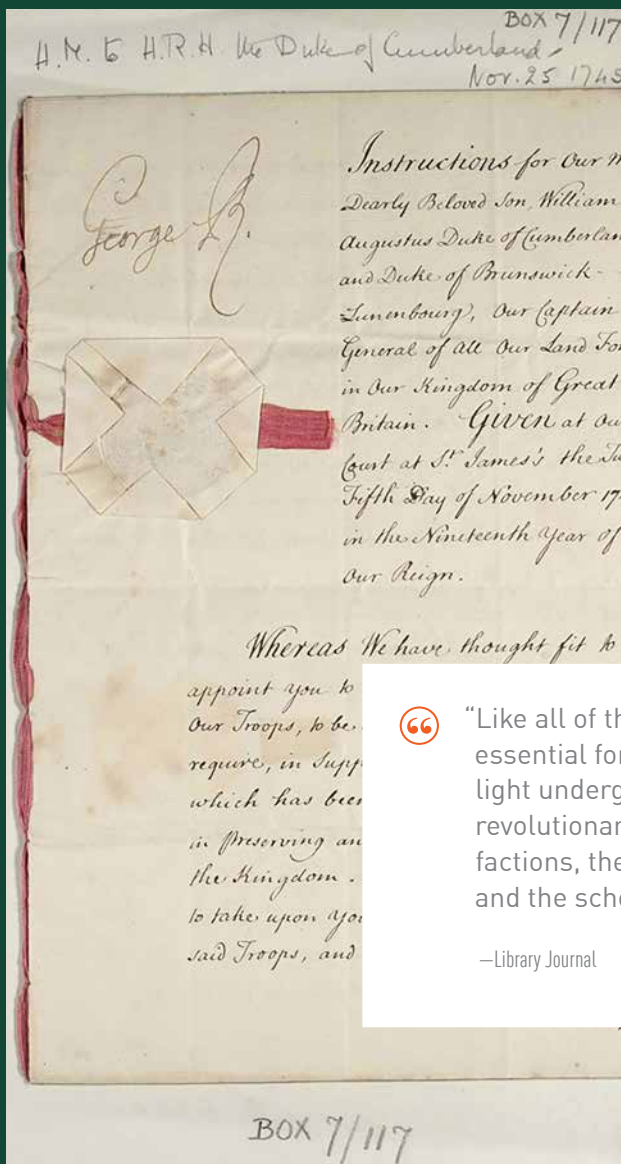 BOX 7/117
H.M. to H.R.H. the Duke of Cumberland
Nov. 25 1745
George R.
Instructions for Our M
Dearly Beloved Son, William
Augustus Duke of Cumberlan
and Duke of Brunswick-
Lunenbourg, Our Captain
General of all Our Land For
in Our Kingdom of Great
Britain. Given at Ou
Court at St. James's the Tw
Fifth Day of November 17
in the Nineteenth Year of
Our Reign.
Whereas We have thought fit to
appoint you to
Our Troops, to be
require, in Supp
which has been
in Preserving an
the Kingdom.
to take upon You
said Troops, and
“Like all of th
essential for
light underg
revolutionar
factions, the
and the scho
—Library Journal
BOX 7/117